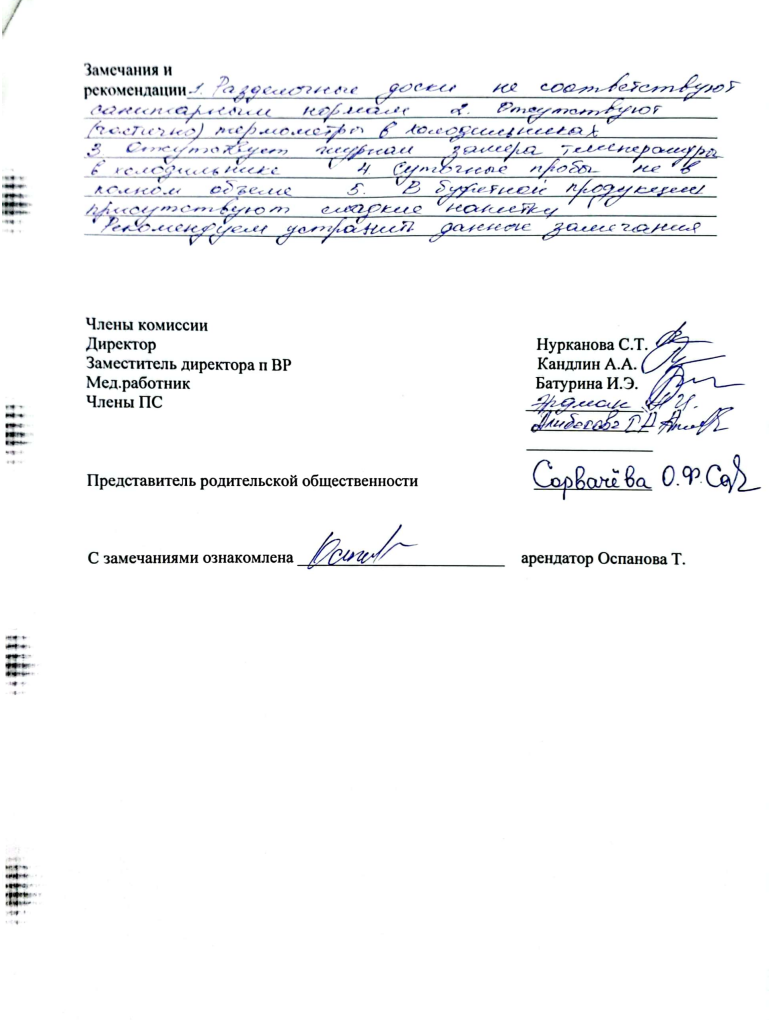 Замечания и
рекомендации 1. Разделочные доски не соответствуют
санитарным нормам 2. Отсутствуют
(частично) термометры в холодильниках
3 Отсутствует журнал замера температуры
в холодильнике 4 Суточные пробы не в
полном объеме 5. В буфетной продукции
присутствуют сладкие напитки
Рекомендуем устранить данные замечания
Члены комиссии
Директор Нурканова С.Т.
Заместитель директора п ВР Кандлин А.А.
Мед.работник Батурина И.Э.
Члены ПС Эрдман Н.И.
Представитель родительской общественности Сорвачёва О.Ф.
С замечаниями ознакомлена арендатор Оспанова Т.